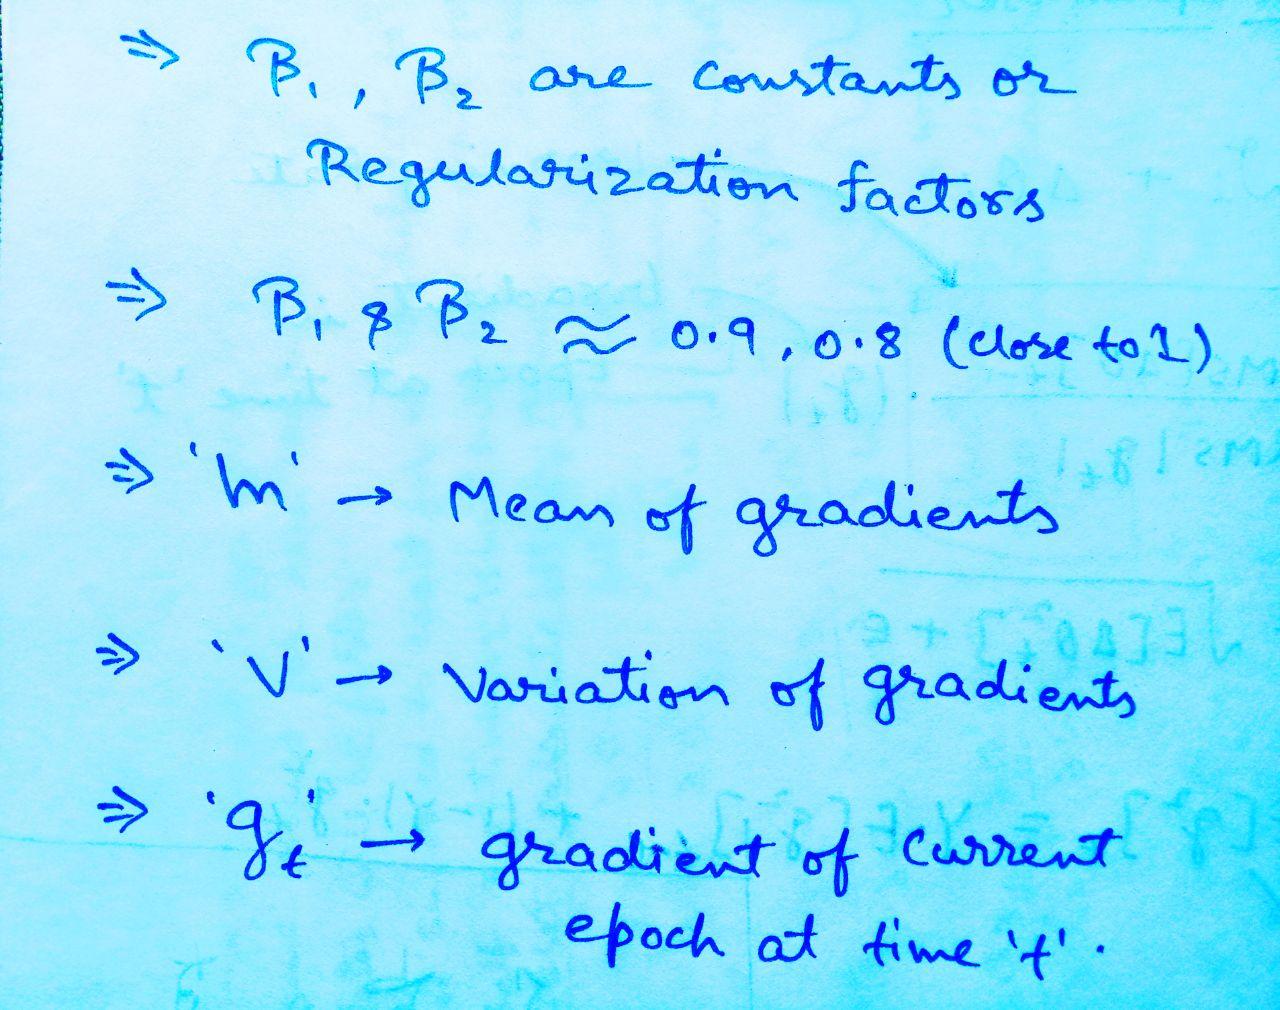 ⇒ B₁, B₂ are constants or
Regularization factors
⇒ B₁ & B₂ ≈ 0.9, 0.8 (close to 1)
⇒ 'm' → Mean of gradients
⇒ 'V' → Variation of gradients
⇒ 'gₜ' → gradient of current
epoch at time 't'.